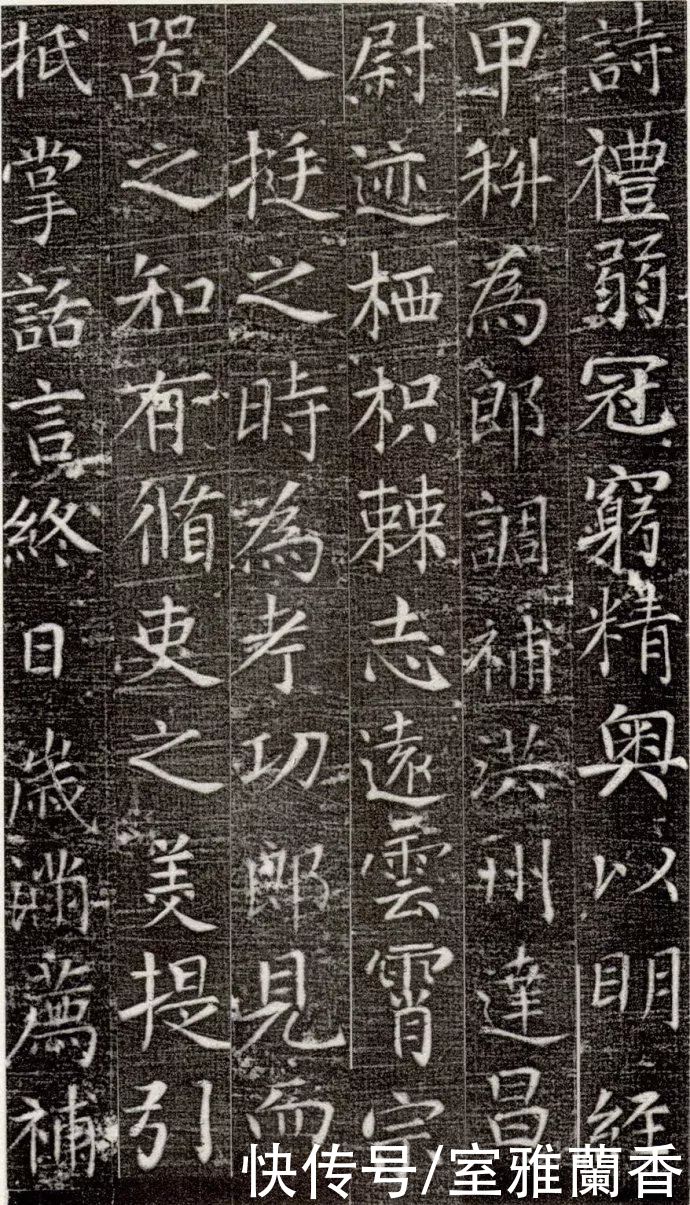 詩禮弱冠窮精奥以明經
甲科為郎調補洪州達昌
尉迹栖枳棘志遠雲霄宗
人挺之時為考功郎見而
器之和有脩吏之美提引
抵掌話言終日歲滿薦補
快传号/室雅蘭香